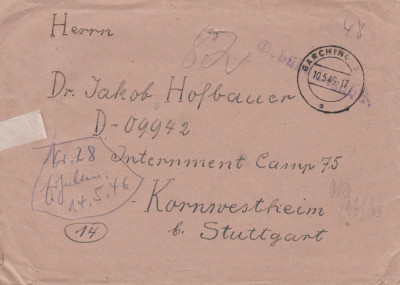 Herrn
48
82
GARCHING
10.5.46.-17
a
Dr. Jakob Hofbauer
D-09942
Internment Camp 75
Nr. 28
14.5.46
Kornwestheim
b. Stuttgart
14